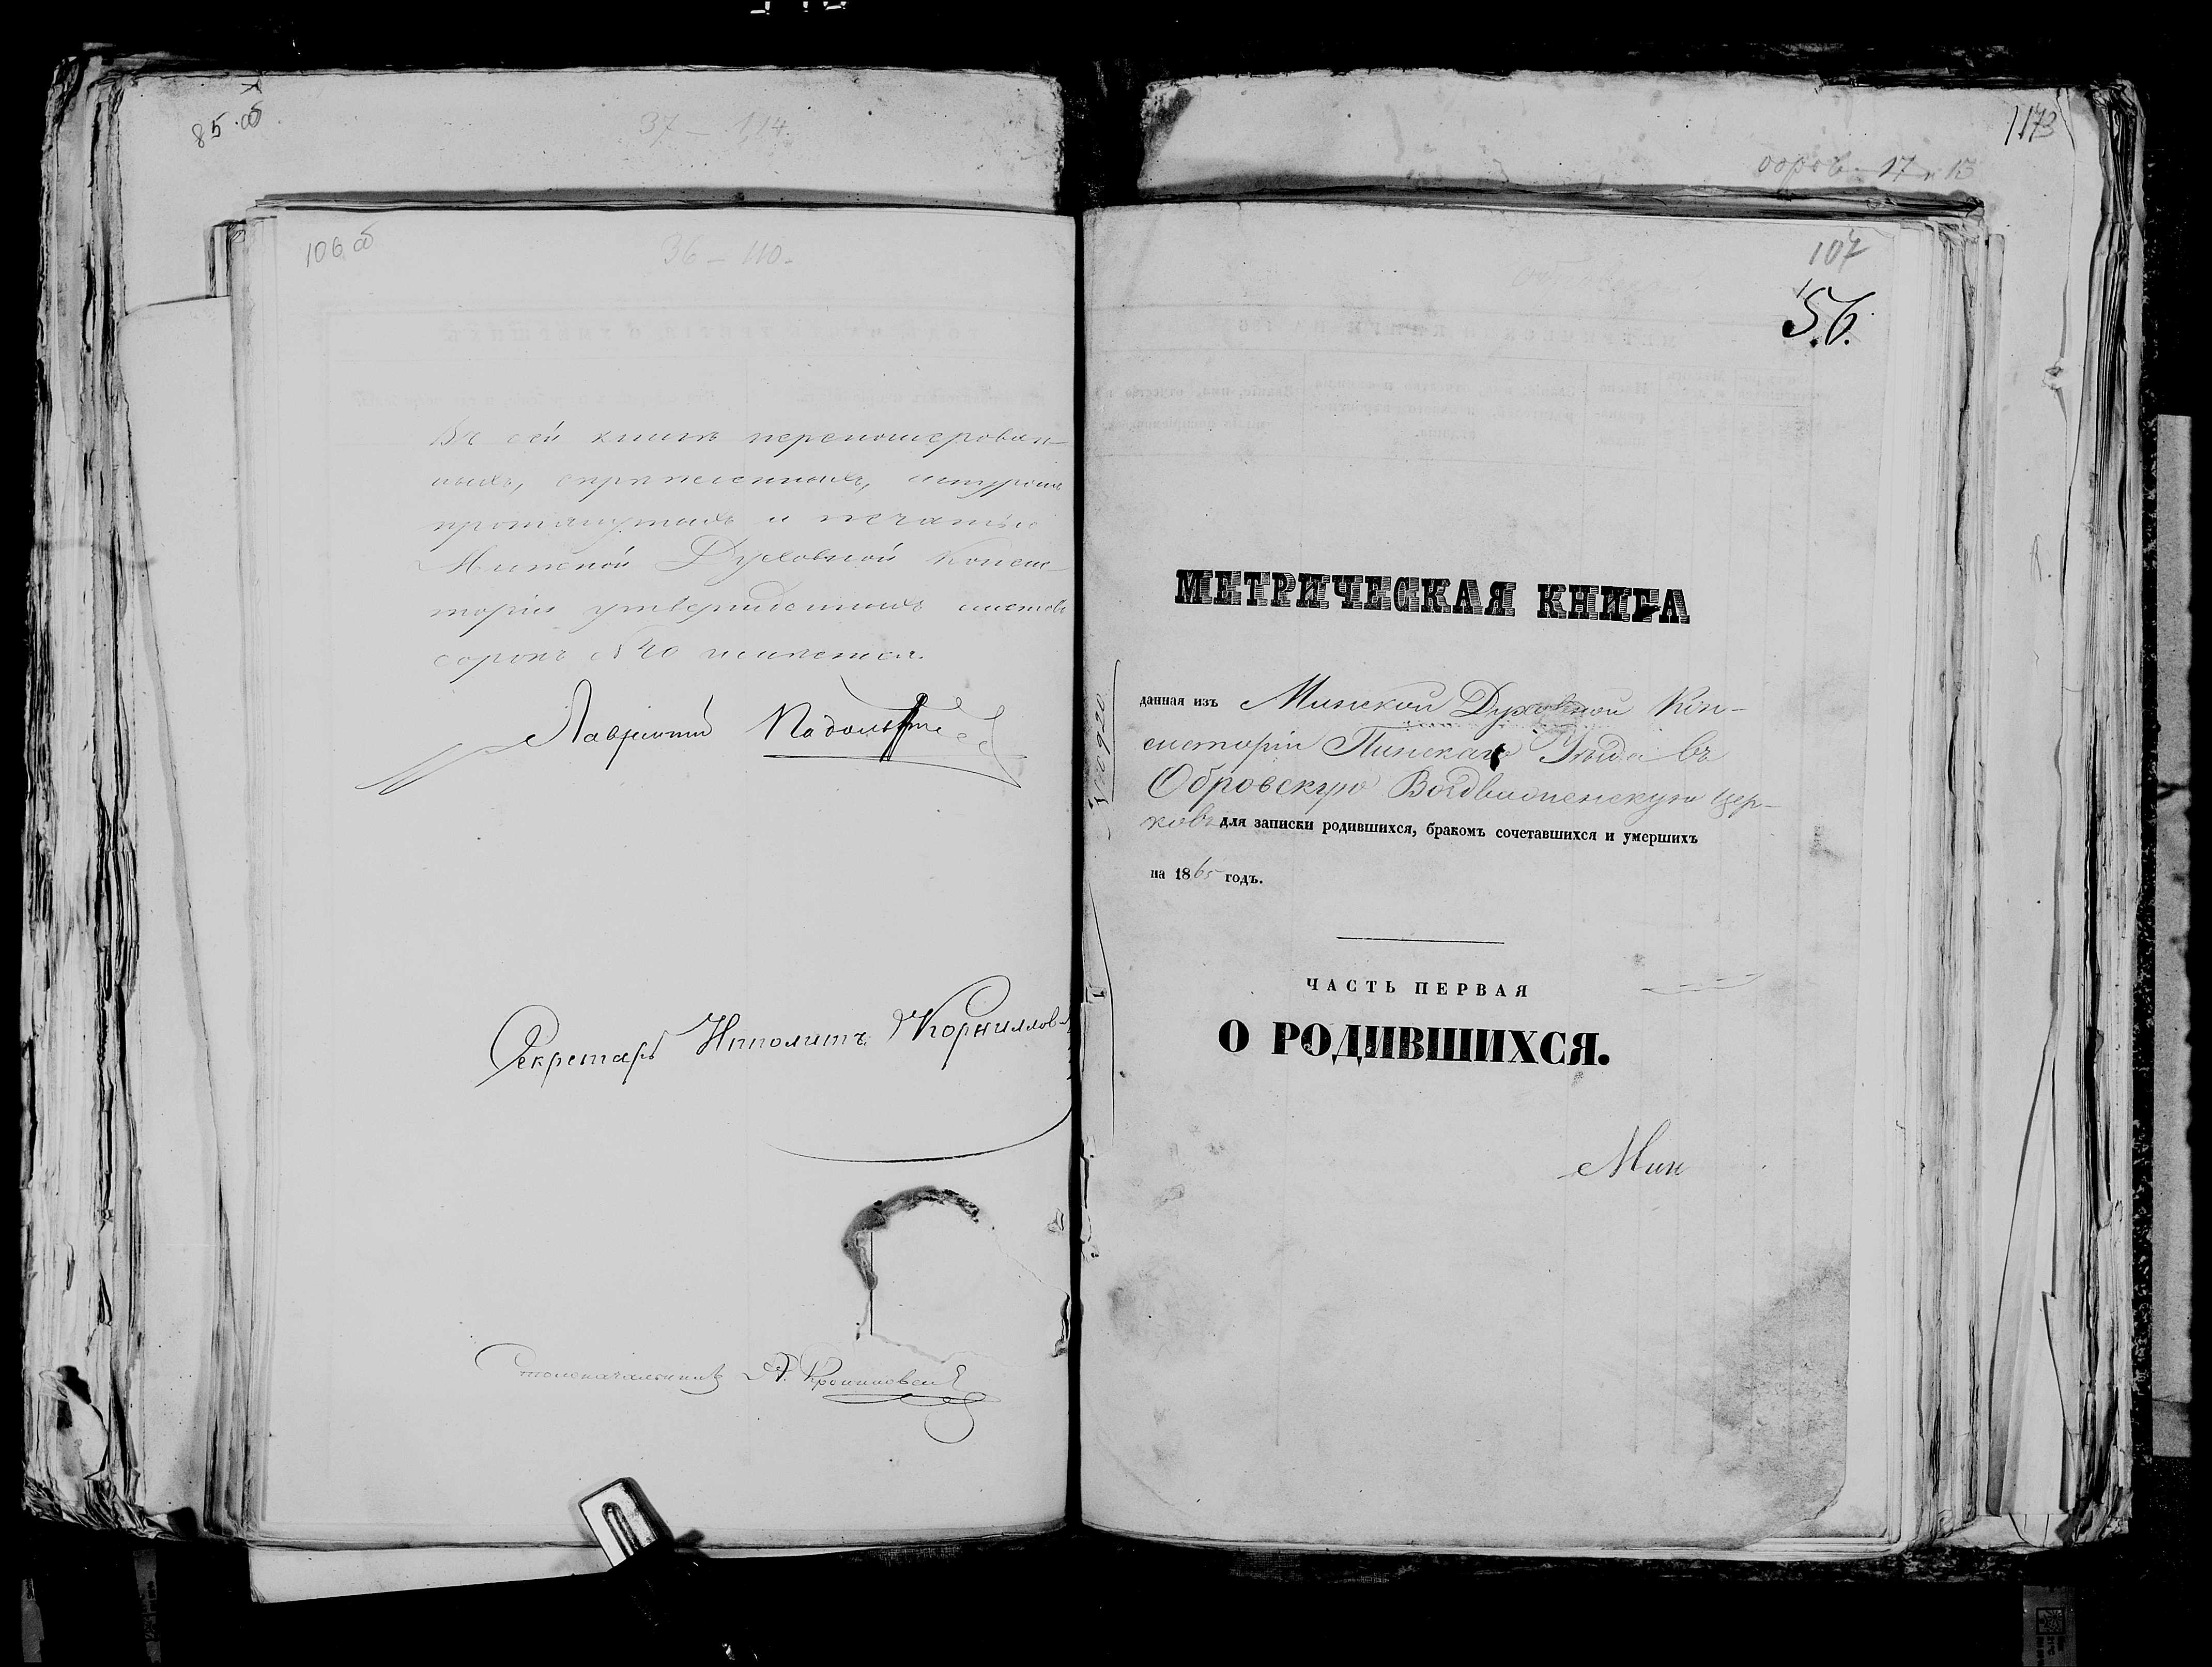 85 об
37 – 114
106 об
36 – 110.
Въ сей книгѣ перенумерован-
ныхъ, скрѣпленныхъ, шнуромъ
протянутыхъ и печатью
Минской Духовной Консис-
торіи утвержденныхъ листовъ
сорокъ № 40 имѣется.
Лаврентій
Секретарь Ипполитъ Корниллов
Столоначальникъ
1173
107
56.
МЕТРИЧЕСКАЯ КНИГА
данная изъ Минской Духовной Кон-
систоріи Пинскаго Уѣзда въ
Обровскую Воздвиженскую Цер-
ковь для записки родившихся, бракомъ сочетавшихся и умершихъ
на 1865 годъ.
ЧАСТЬ ПЕРВАЯ
О РОДИВШИХСЯ.
Мин